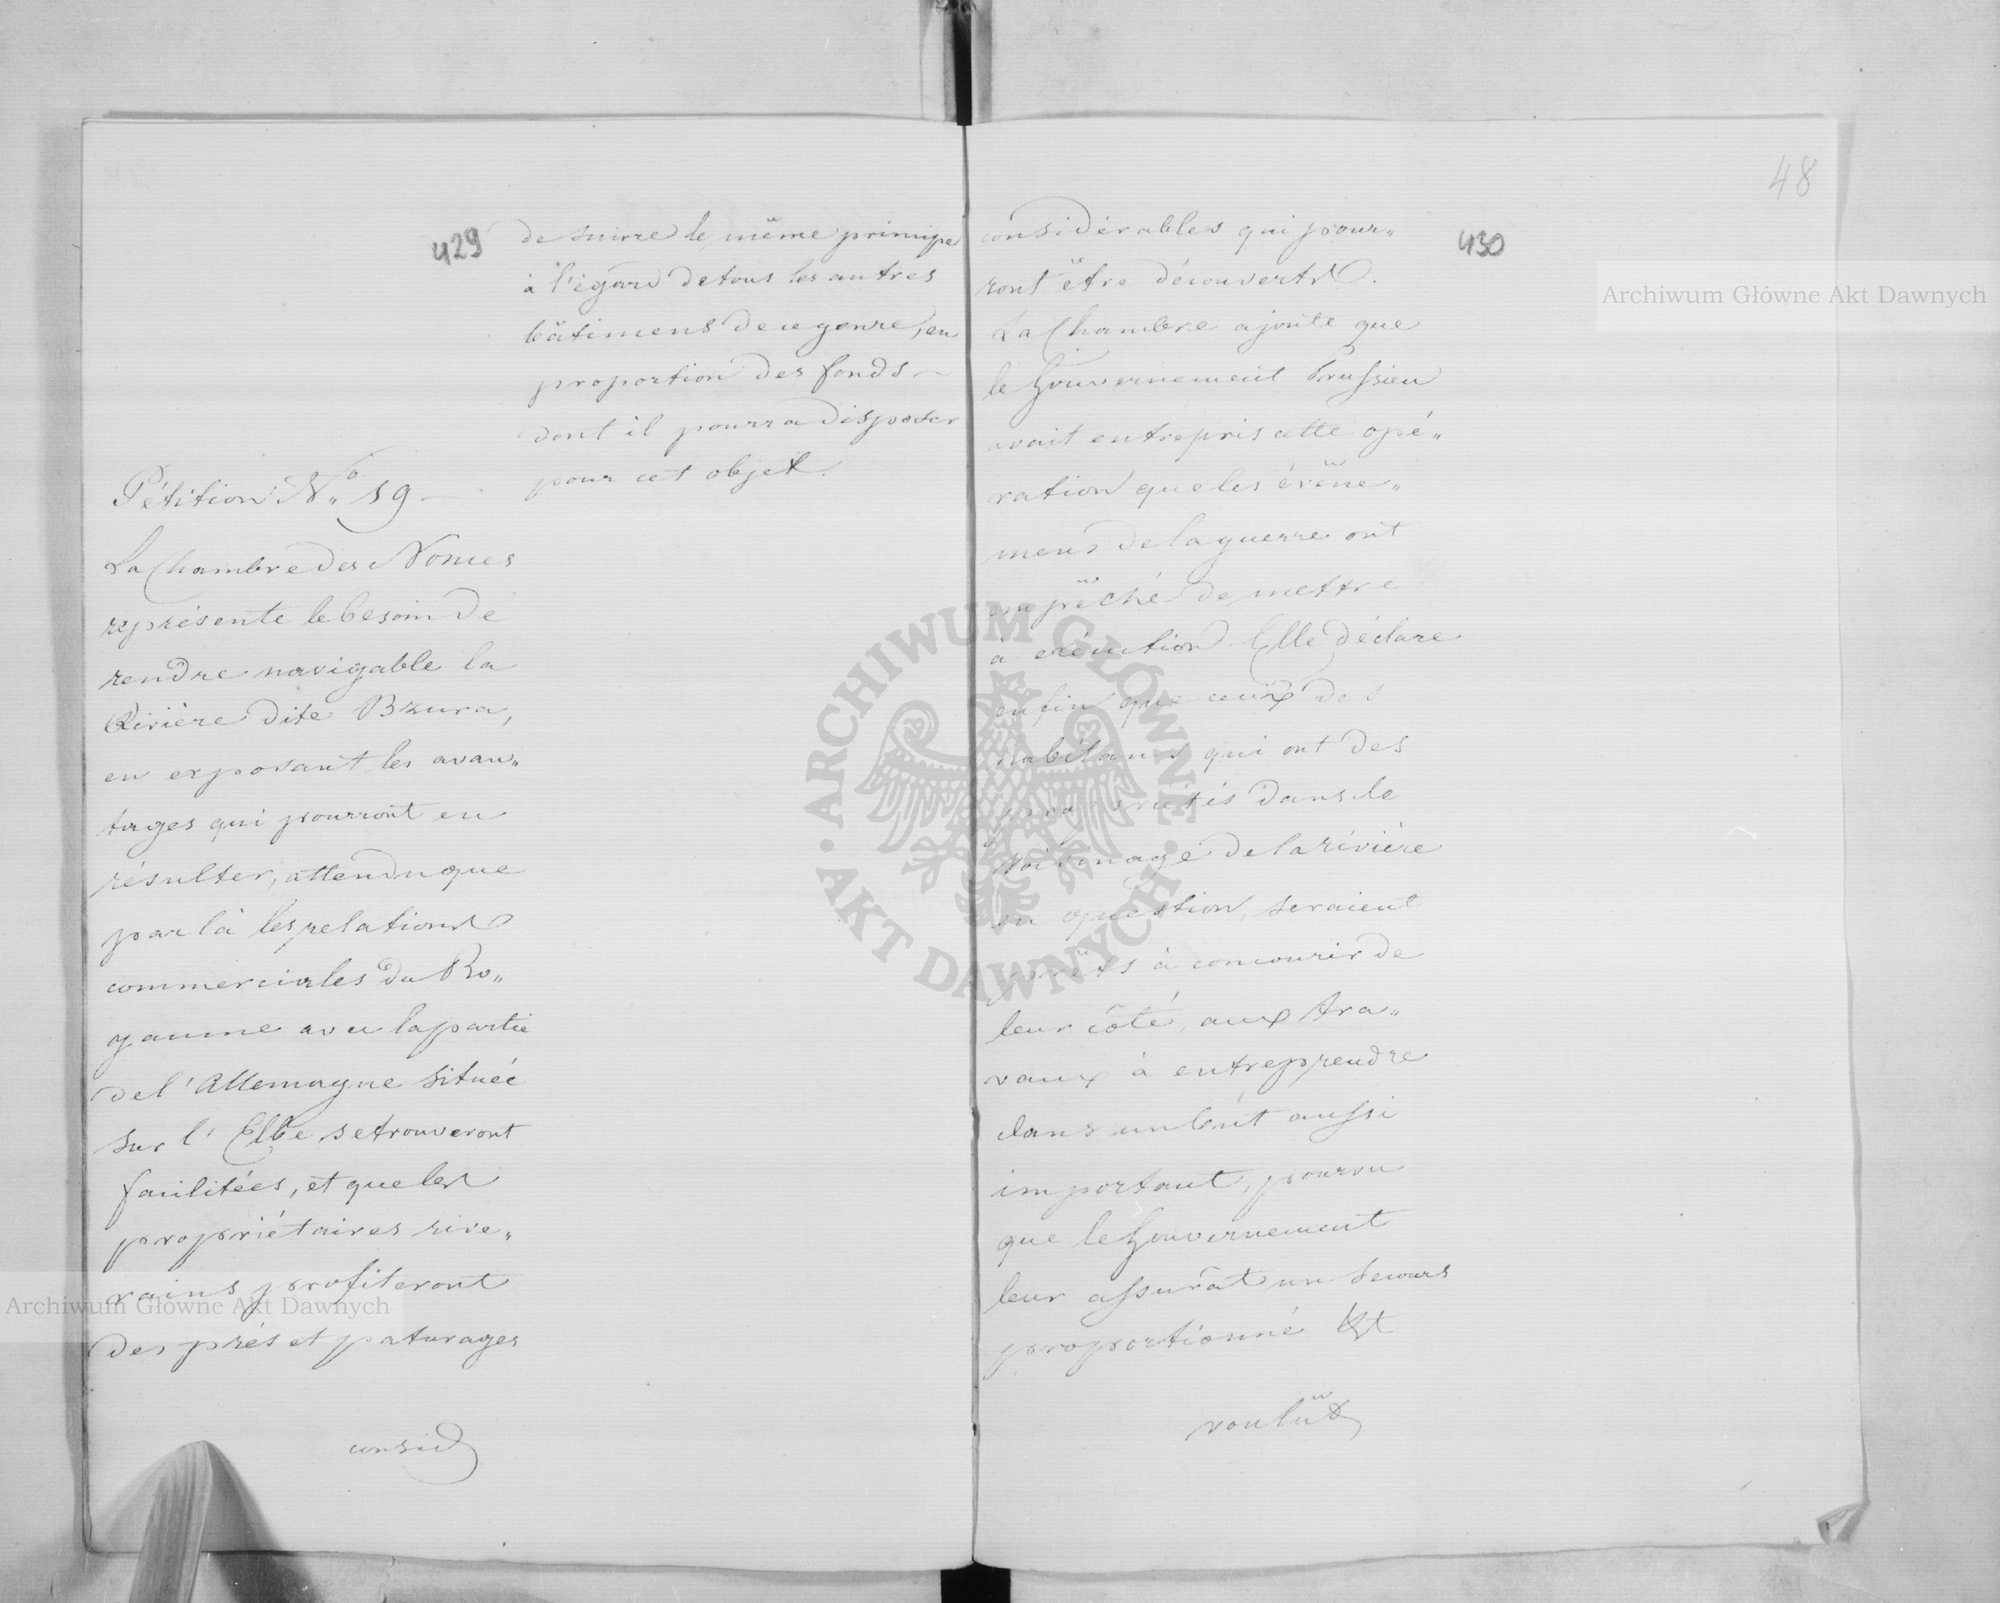 429
de suivre le même principe
à l'égard de tous les autres
bâtimens de ce genre, en
proportion des fonds
dont il pourra disposer
pour cet objet.
Pétition No. 19
La Chambre des Nonces
représente le besoin de
rendre navigable la
Rivière dite Bzura,
en exposant les avan„
tages qui pourront en
résulter, attendu que
par là les relations
commerciales du Ro„
yaume avec la partie
de l'Allemagne située
sur l'Elbe se trouveront
facilitées, et que les
propriétaires rive„
rains profiteront
des prés et paturages
consid
48
430
considérables qui pour„
ront être découverts.
La Chambre ajoute que
le Gouvernement Prussien
avait entrepris cette opé„
ration que les événe„
mens de la guerre ont
empêché de mettre
a exécution. Elle déclare
enfin que ceux des
habitans qui ont des
propriétés dans le
voisinage de la rivière
en question, seraient
prêts à concourir de
leur côté, aux tra„
vaux à entreprendre
dans un bût aussi
important, pourvu
que le Gouvernement
leur assurât un secours
proportionné &t
voulût
Archiwum Główne Akt Dawnych
Archiwum Główne Akt Dawnych
ARCHIWUM GŁÓWNE AKT DAWNYCH